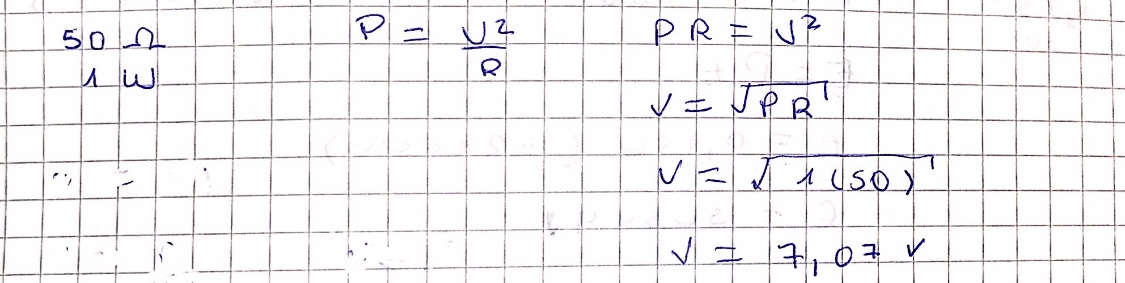 50 Ω
1 W
P = V²/R
PR = V²
V = √PR
V = √1(50)
V = 7,07 V